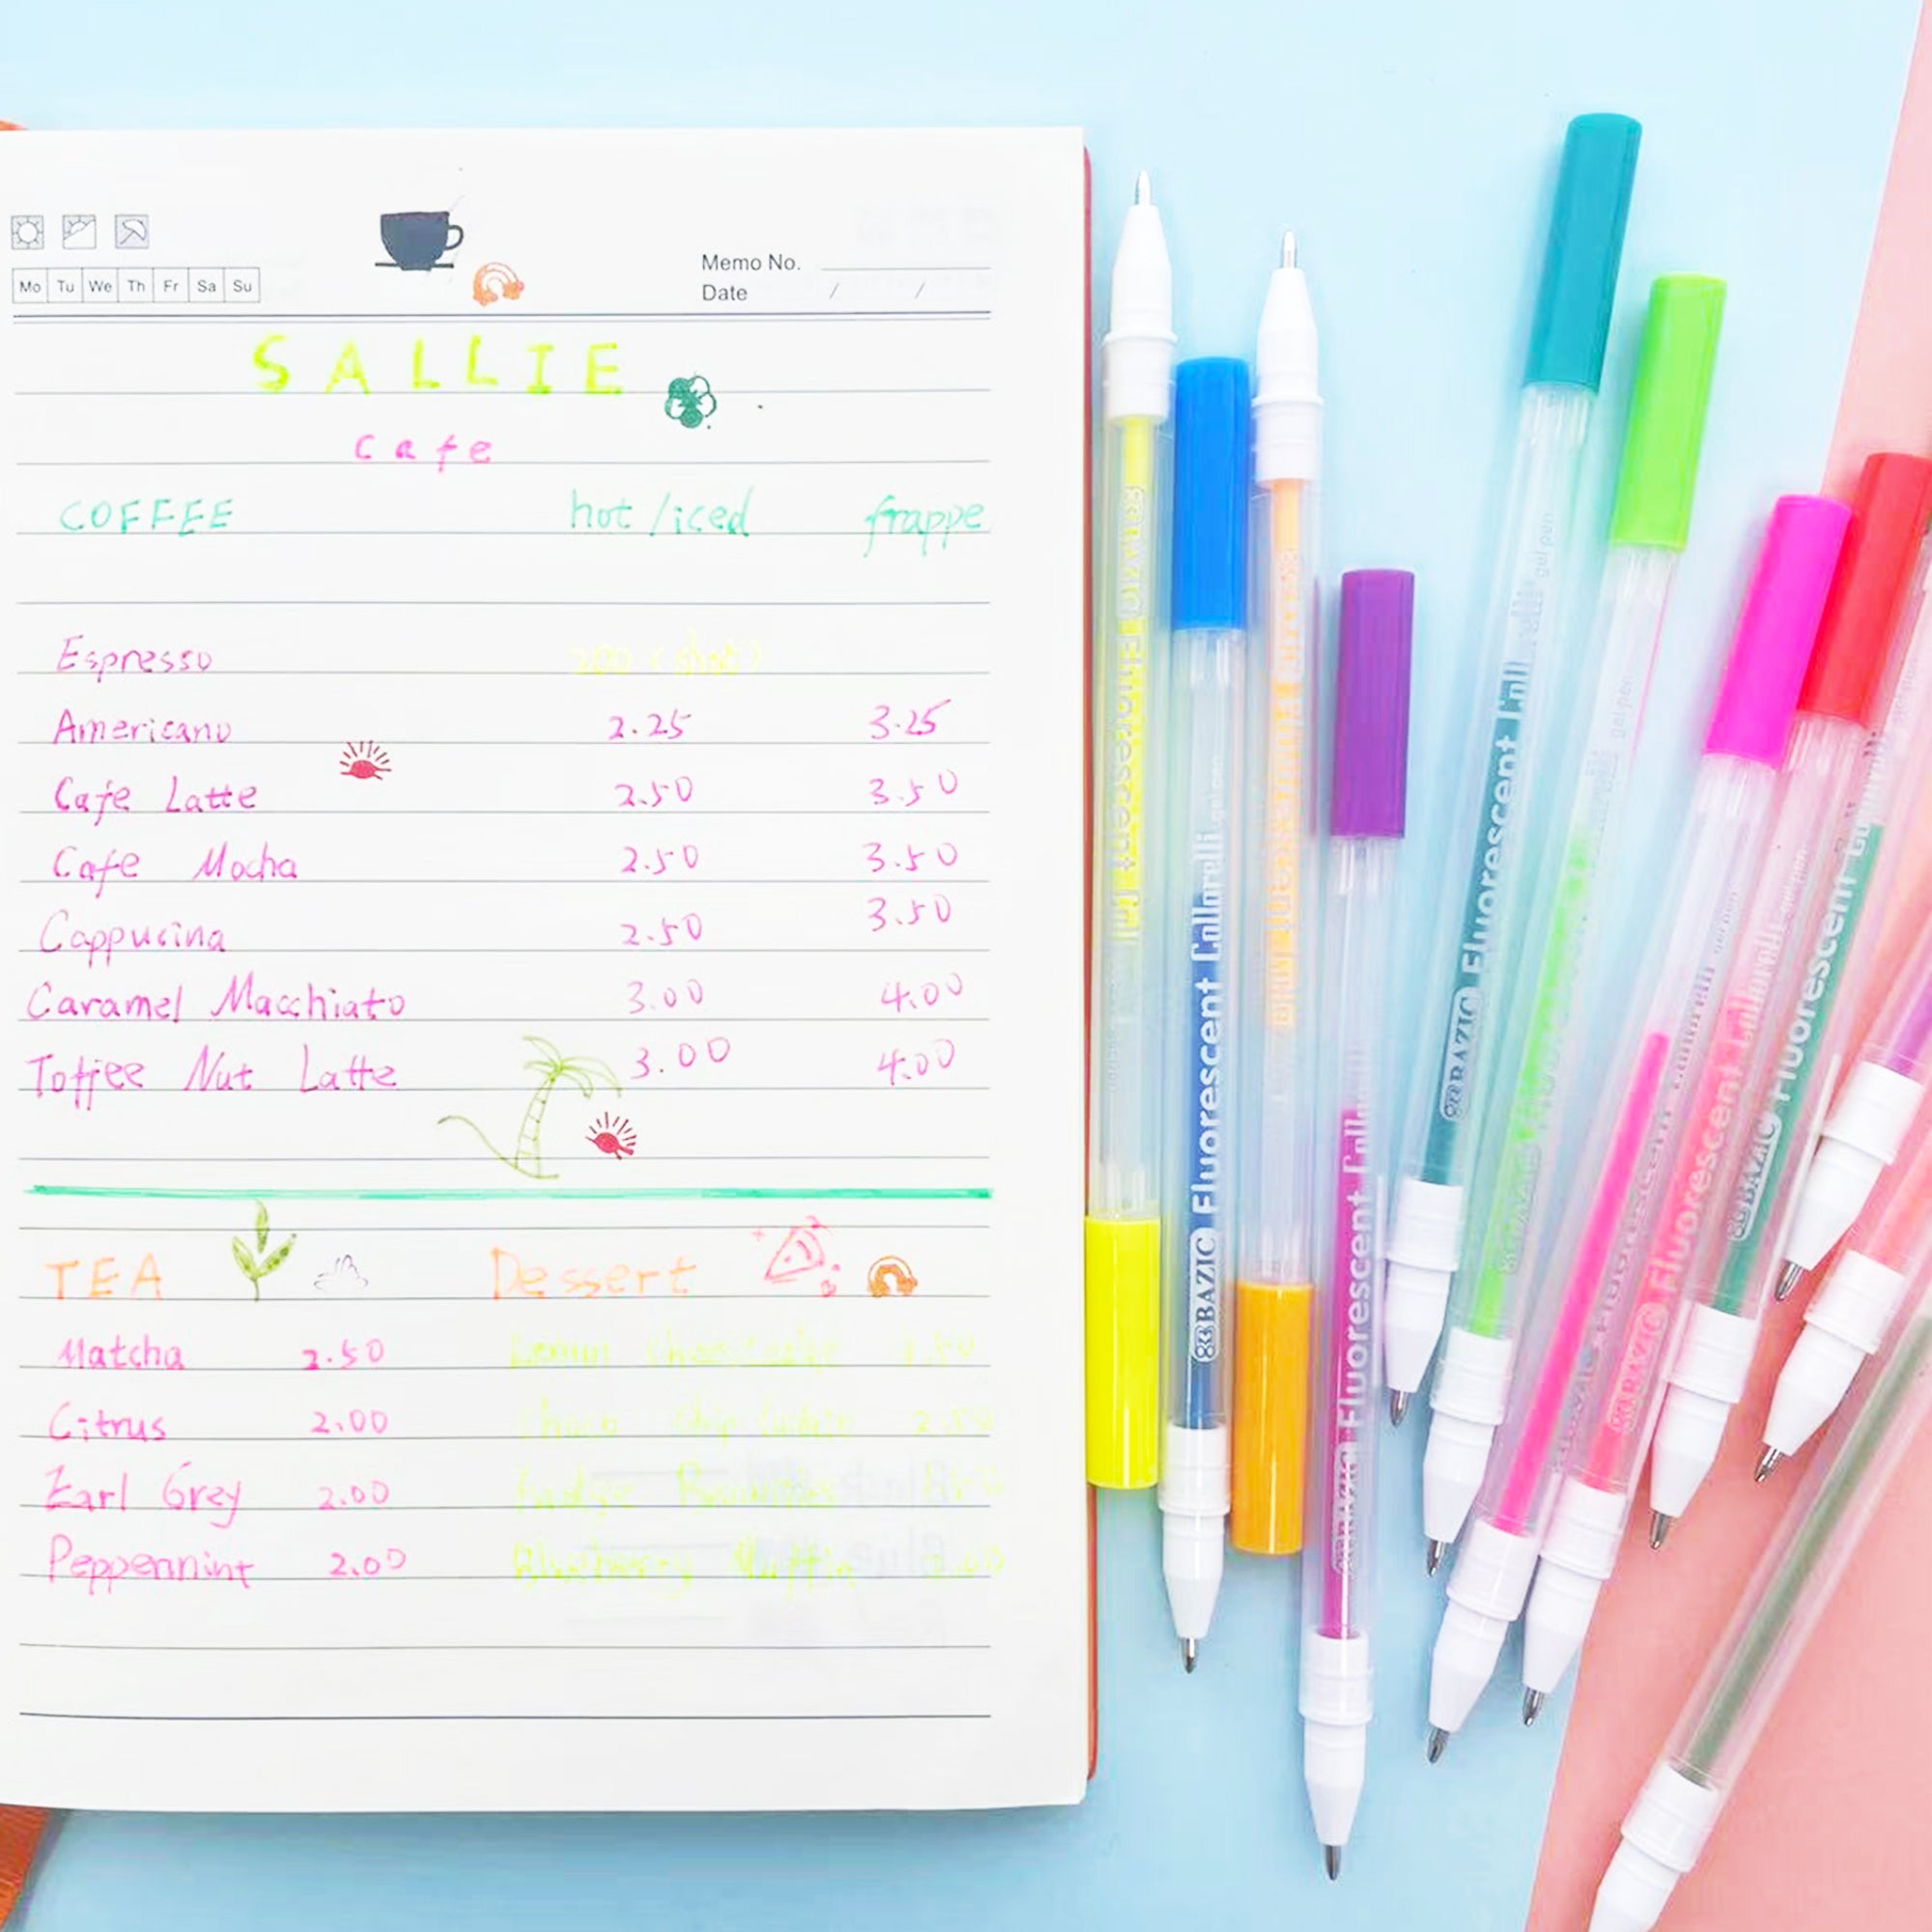 Mo Tu We Th Fr Sa Su
Memo No.
Date / /
SALLIE
Cafe
COFFEE hot/iced frappe
Espresso
Americano 2.25 3.25
Cafe Latte 2.50 3.50
Cafe Mocha 2.50 3.50
Cappucina 2.50 3.50
Caramel Macchiato 3.00 4.00
Toffee Nut Latte 3.00 4.00
TEA Dessert
Matcha 2.50
Citrus 2.00 Choco Chip
Earl Grey 2.00 Fudge Brownies
Peppermint 2.00 Blueberry Muffin
BAZIC Fluorescent
BAZIC Fluorescent Collorelli gel pen
Fluorescent
BAZIC Fluorescent
BAZIC Fluorescent gel pen
gel pen
gel pen
BAZIC Fluorescent gel pen
BAZIC Fluorescent